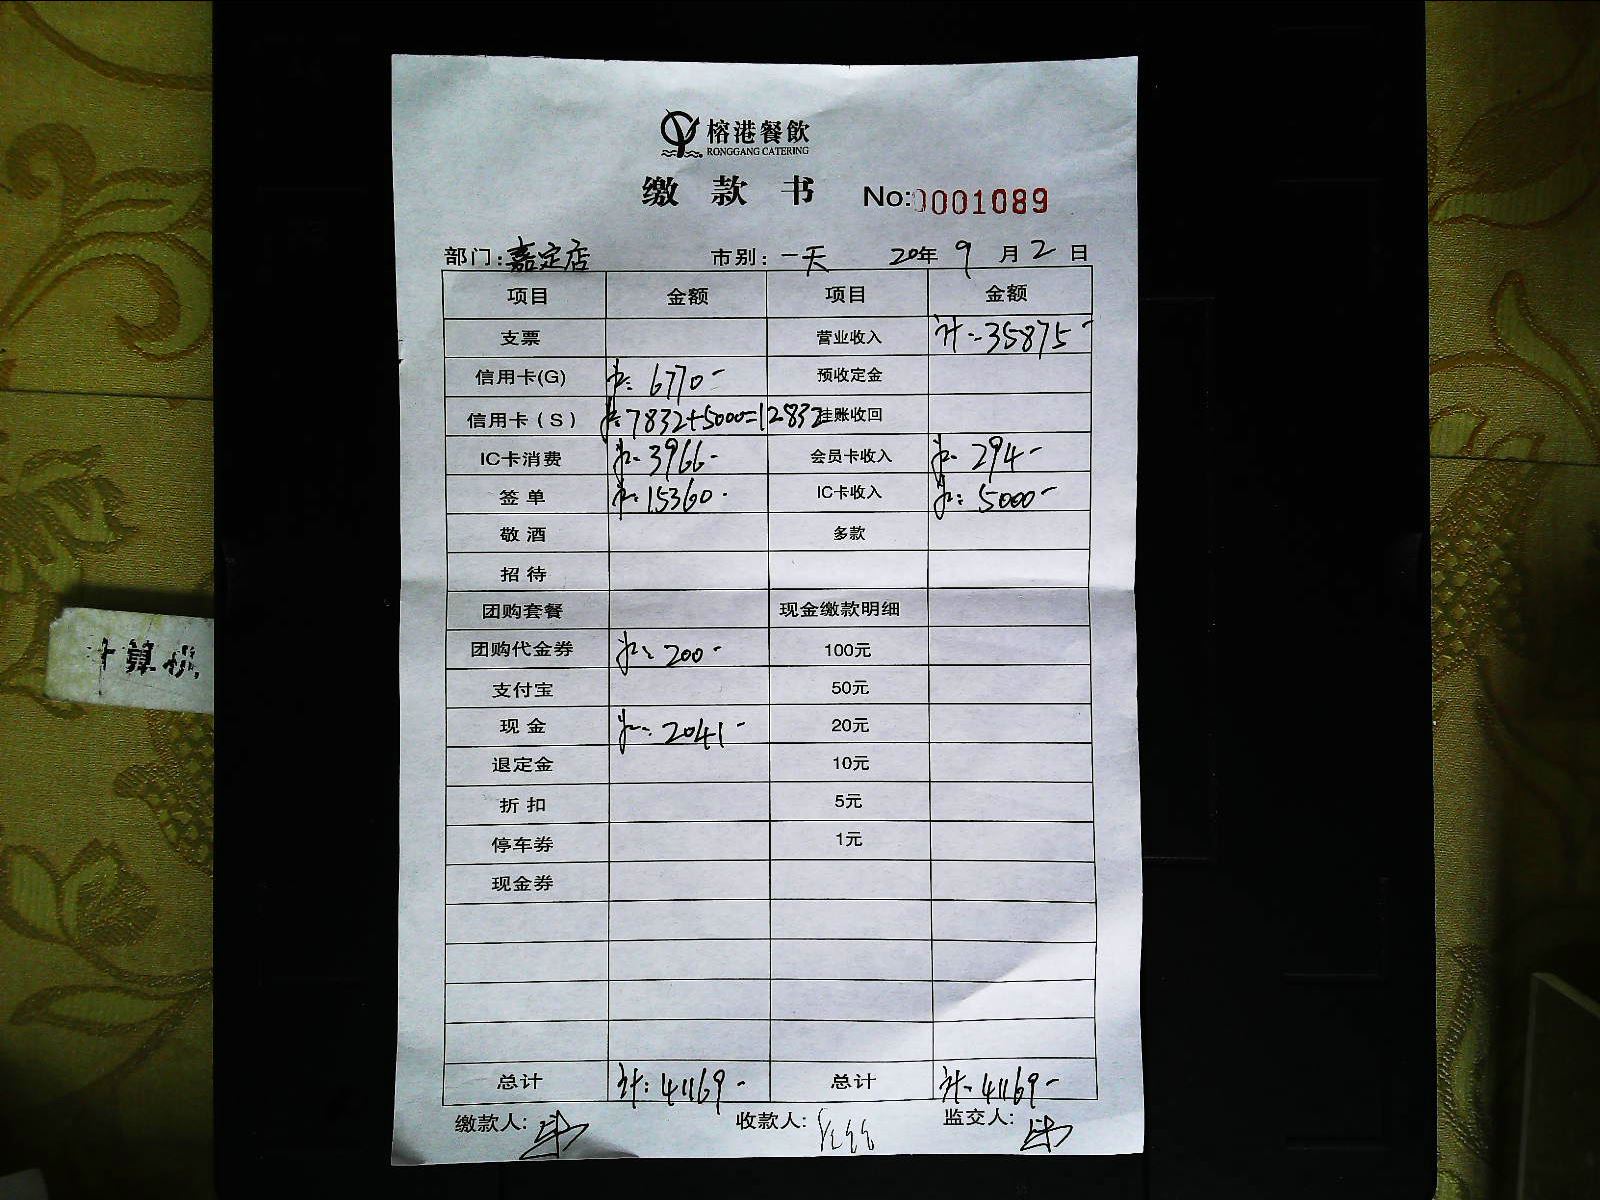 榕港餐飲
RONGGANG CATERING
缴款书 No:0001089
部门:嘉定店 市别:一天 20年9月2日
项目 金额 项目 金额
支票 营业收入 计:35875-
信用卡(G) 计:6770- 预收定金
信用卡(S) 计:7832+5000=12832 挂账收回
IC卡消费 计:3966- 会员卡收入 计:294-
签单 计:15360- IC卡收入 计:5000-
敬酒 多款
招待
团购套餐 现金缴款明细
团购代金券 计:200- 100元
支付宝 50元
现金 计:2041- 20元
退定金 10元
折扣 5元
停车券 1元
现金券
总计 计:41169- 总计 计:41169-
缴款人: 收款人: 监交人:
计算机